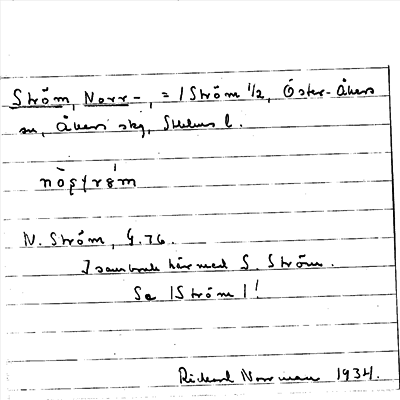 Ström, Norr-, = /Ström ½, Öster-Åkers
sn, Åkers skg, Sthlms l.
nò̀ʂʈrǝ́m
N. Ström, G.76.
I sambruk här med S. Ström.
Se /Ström/!
Rickard Norrman 1934.